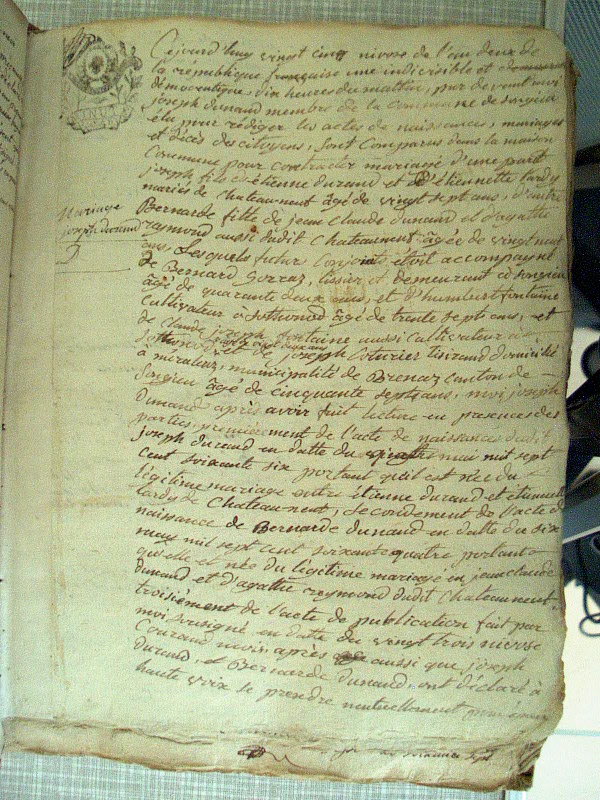 Cejourd huy vingt cinq nivose de l'an deux de
la république française une indivisible et
démocratique, dix heures du mattin, par devant moi
joseph dunand membre de la commune de songieu
élu pour rédiger les actes de naissances, mariages
et décès des citoyens, sont comparus dans la maison
commune pour contracter mariage d'une part
joseph fils d'étienne durand et d'étiennette tardy
mariés de chateauneuf âgé de vingt sept ans, d'autre
Mariage
joseph durand
Bernarde fille de jean claude dunand et d'agathe
reymond aussi dudit chateauneuf âgée de vingt neuf
ans, Lesquels futur conjoints étoit accompagné
de Bernard gorraz, tissier et demeurant à songieu
âgé de quarante deux ans, et d'humbert fontaine
cultivateur à sothonod âgé de trente sept ans, et
de claude joseph fontaine aussi cultivateur à
sothonod et de joseph couturier tisserand domicilié
à méraleaz, municipalité de Brenaz canton de
songieu âgé de cinquante sept ans, moi joseph
dunand après avoir fait lecture en presences des
parties, premièrement de l'acte de naissances dudit
joseph durand en datte du quatre mai mil sept
cent soixante six portant qu'il est née du
légitime mariage entre étienne durand et étiennette
tardy de chateauneuf, secondement de l'acte de
naissance de Bernarde dunand en datte du six
mars mil sept cent soixante quatre portant
qu'elle et née du légitime mariage en jean claude
dunand et d'agathe reymond dudit chateauneuf
troisiément de l'acte de publication fait par
moi soussigné en datte du vingt trois nivose
courant mois, après aussi que joseph
durand, et Bernarde dunand, ont déclaré à
haute voix se prendre mutuellement pour époux